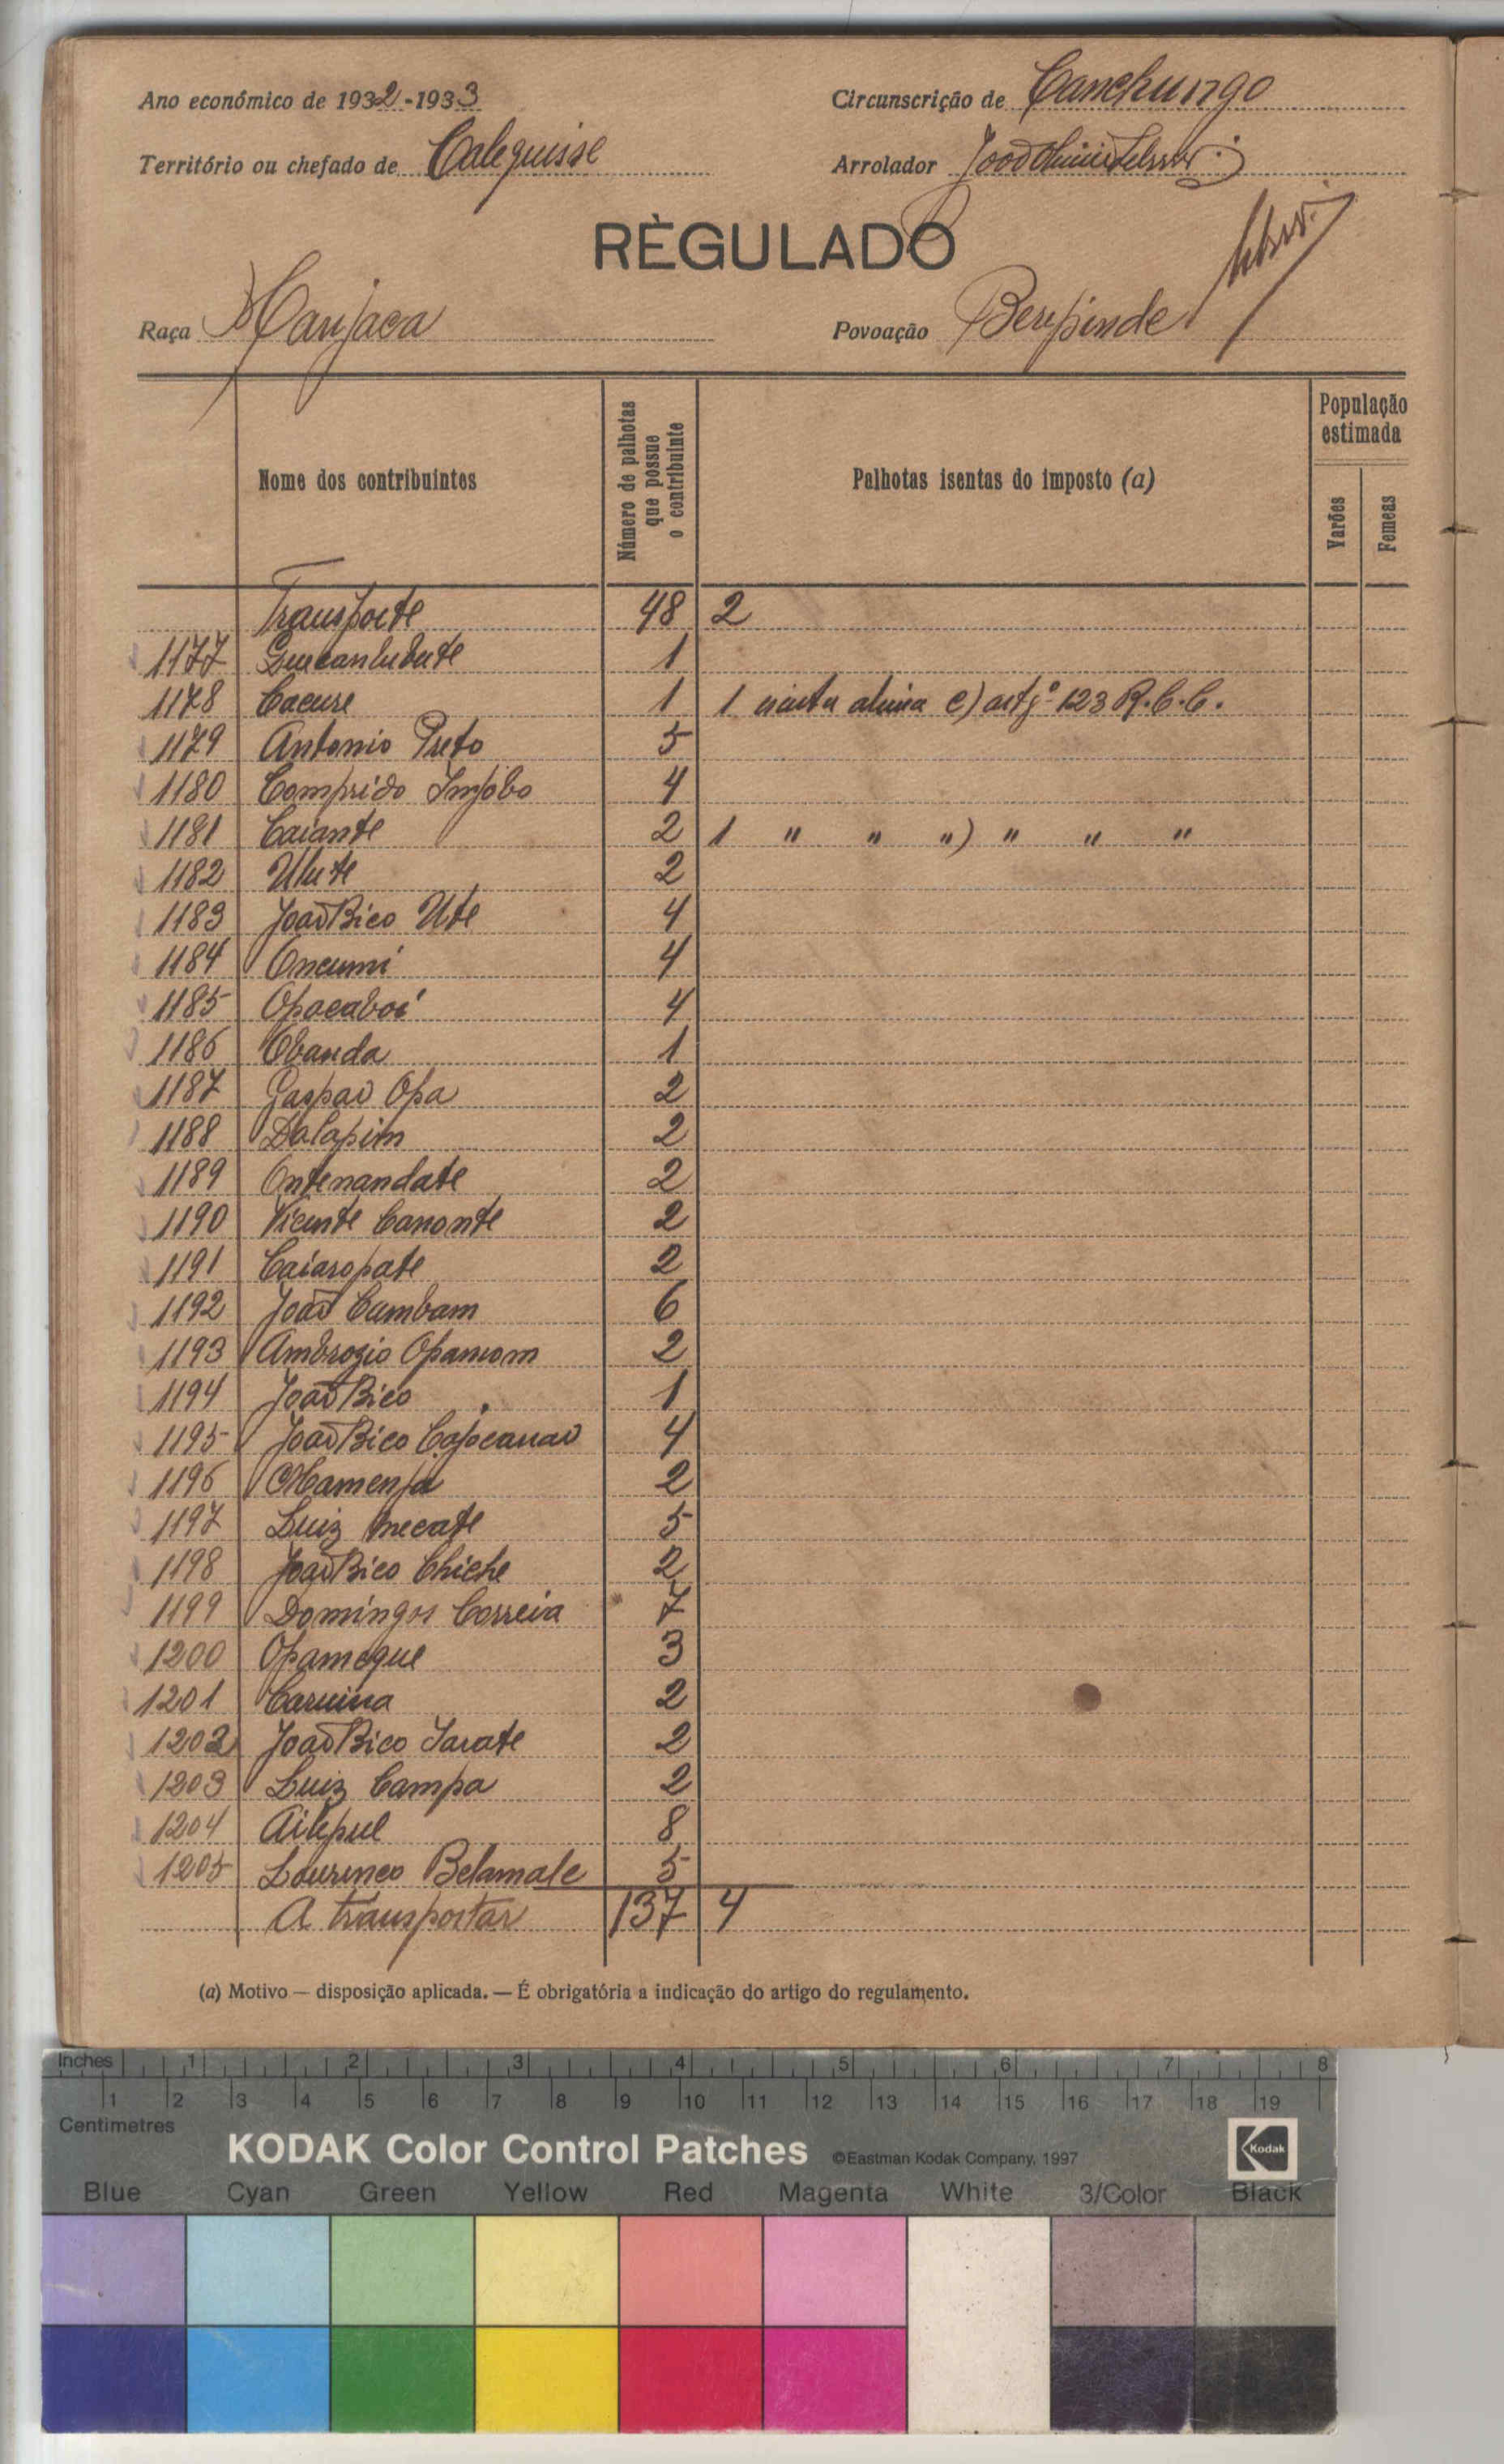 Ano económico de 1932-1933
Circunscrição de Canchungo
Território ou chefado de Calequisse
Arrolador
RÈGULADO
Raça Manjaca
Povoação Berepinde
Nome dos contribuintes
Número de palhotas que possue o contribuinte
Palhotas isentas do imposto (a)
População estimada
Varões
Femeas
Transporte 48 2
1177 1
1178 Cacure 1 1 isenta alinea e) artgº 123 R.C.C.
1179 Antonio Preto 5
1180 Comprido Impobo 4
1181 Caiante 2 1 " " ") " " "
1182 Ulute 2
1183 João Bico Ute 4
1184 Oncumi 4
1185 Opacaboi 4
1186 Obanda 1
1187 Gaspar Opa 2
1188 Dalapim 2
1189 Ontenandate 2
1190 Vicente Canonte 2
1191 Caiaropate 2
1192 João Cambam 6
1193 Ambrozio Opamom 2
1194 João Bico 1
1195 João Bico Capocanao 4
1196 2
1197 Luiz Mecate 5
1198 João Bico Chiche 2
1199 Domingos Correia 7
1200 Opameque 3
1201 Caruina 2
1202 João Bico Jarate 2
1203 Luiz Campa 2
1204 Ailepul 8
1205 Lourenço Belamale 5
A transportar 137 4
(a) Motivo — disposição aplicada. — É obrigatória a indicação do artigo do regulamento.
Inches 1 2 3 4 5 6 7 8
1 2 3 4 5 6 7 8 9 10 11 12 13 14 15 16 17 18 19
Centimetres
KODAK Color Control Patches ©Eastman Kodak Company, 1997 Kodak
Blue Cyan Green Yellow Red Magenta White 3/Color Black